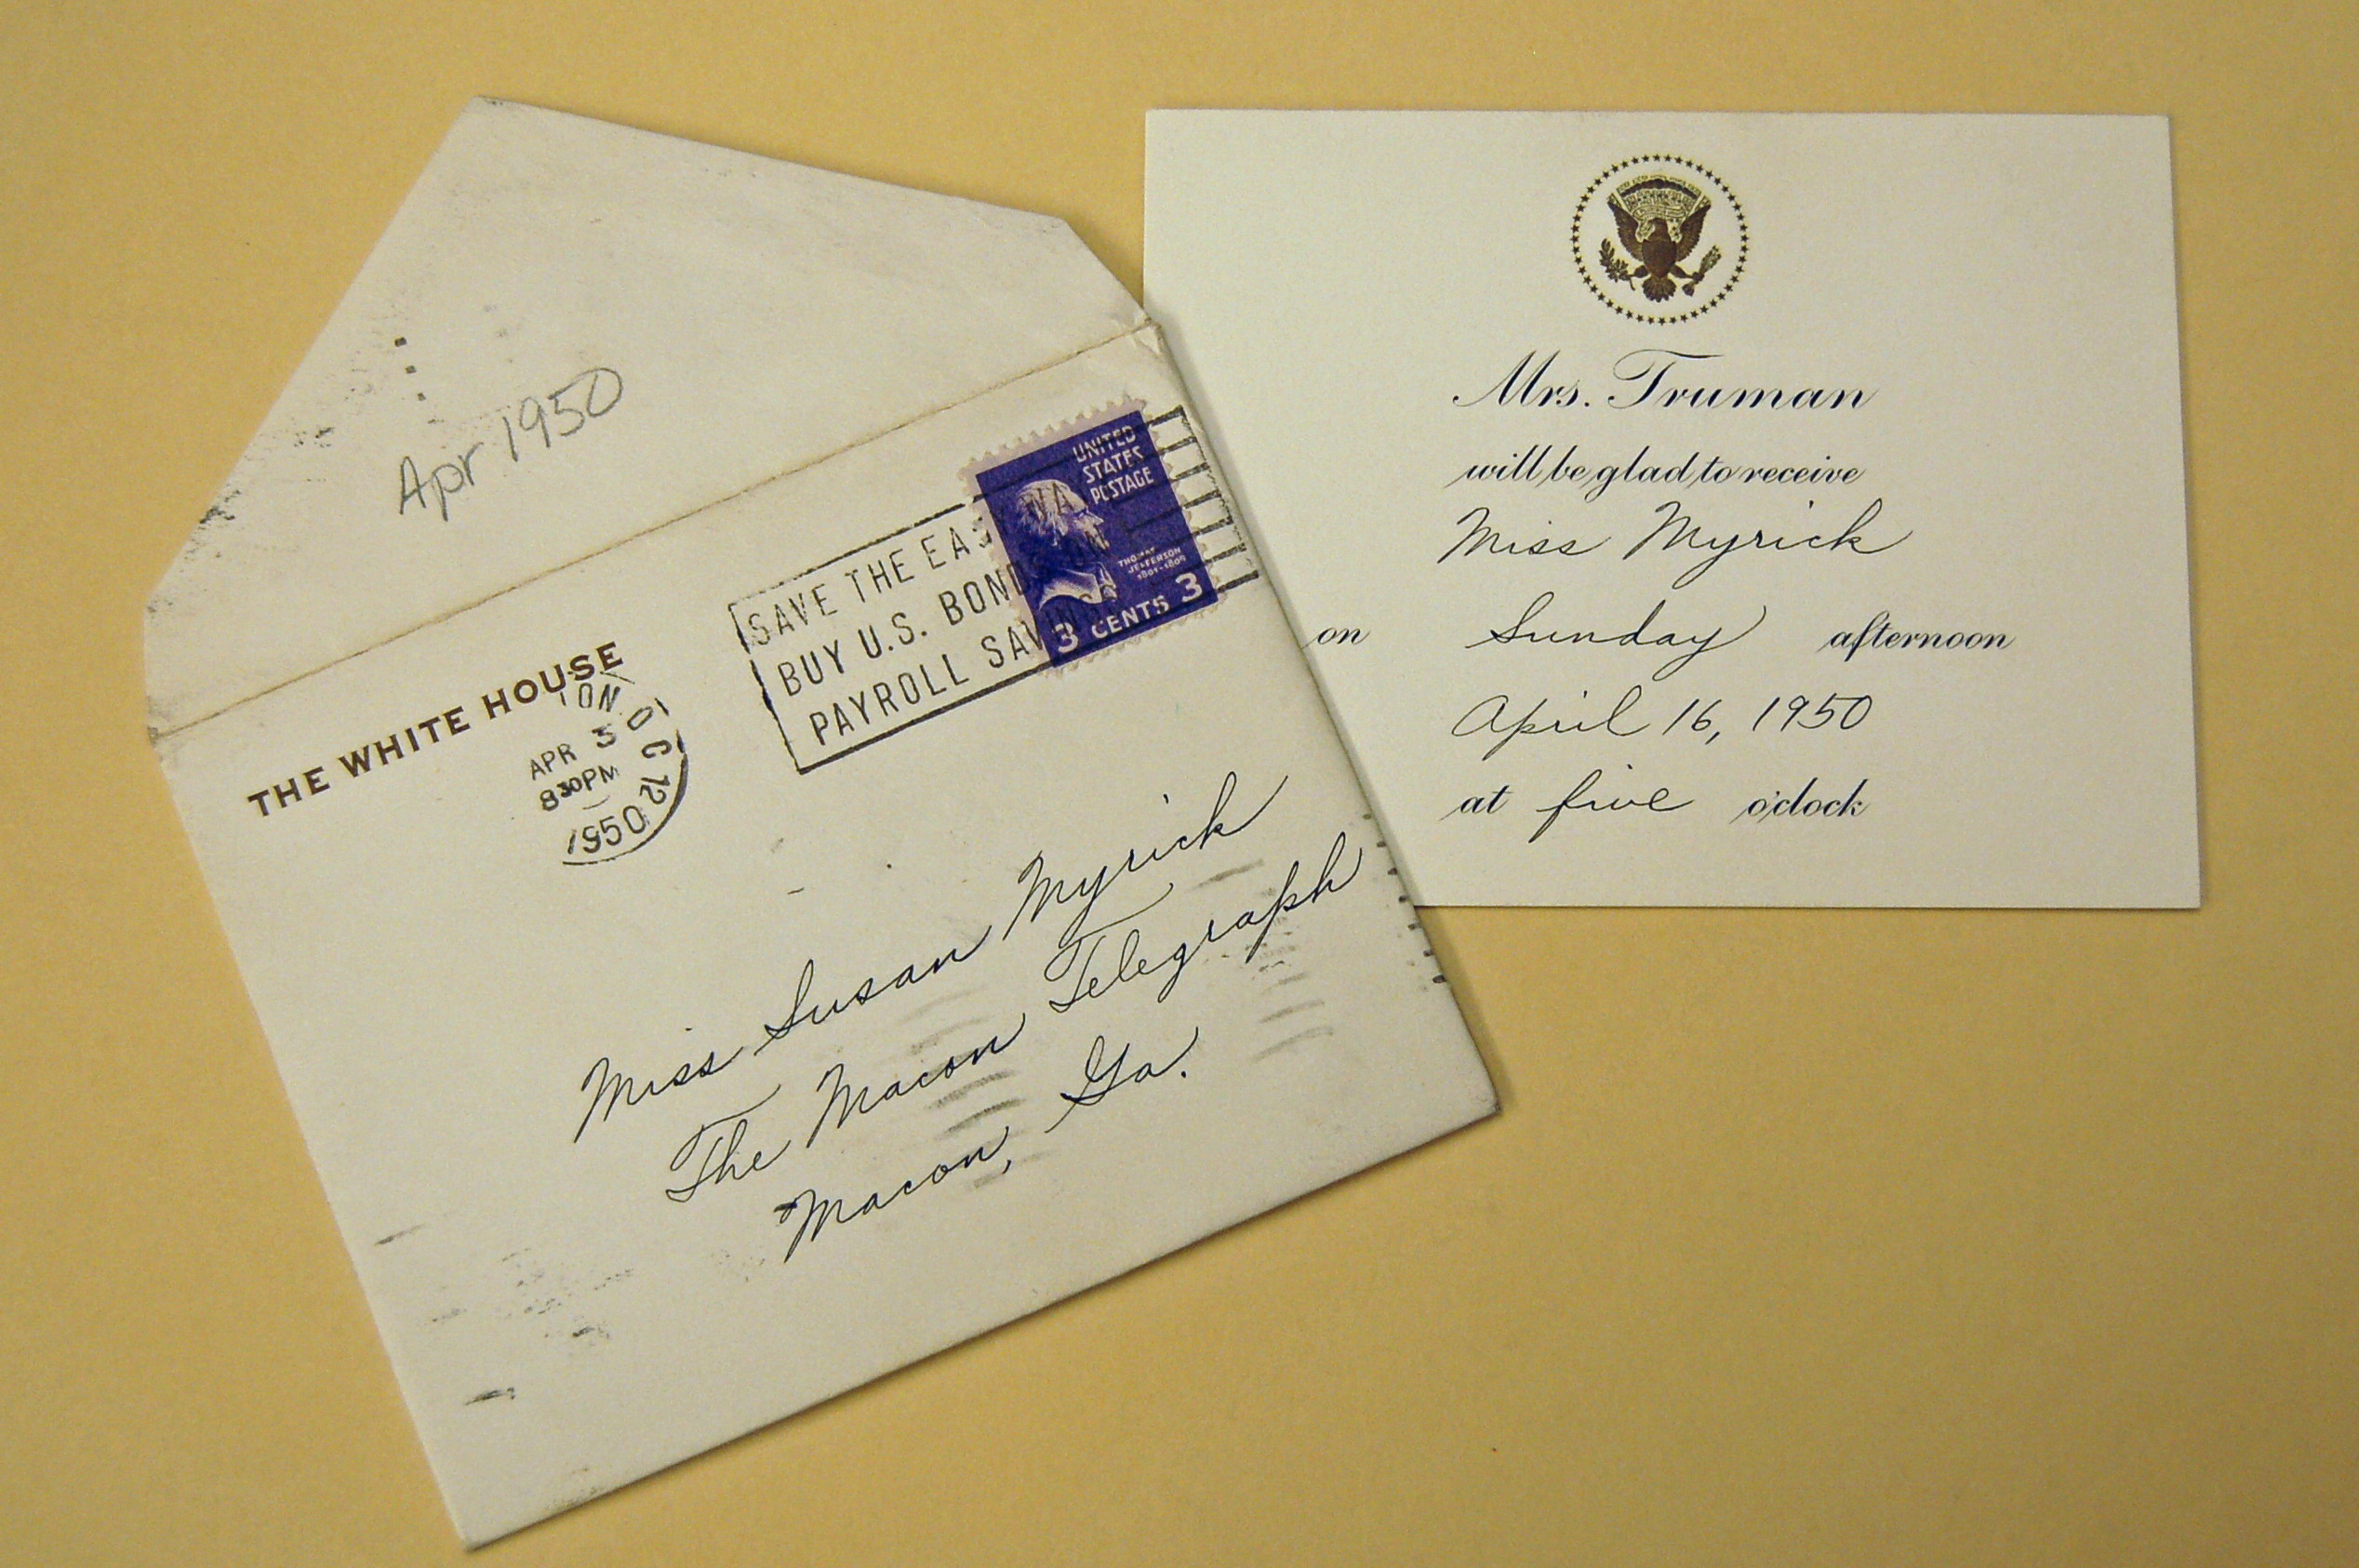 Apr 1950
THE WHITE HOUSE
APR 3
8 30 PM
1950
D C 12
SAVE THE EASY WAY
BUY U.S. BONDS
PAYROLL SAVINGS
UNITED
STATES
POSTAGE
THOMAS
JEFFERSON
1801-1809
3 CENTS 3
Miss Susan Myrick
The Macon Telegraph
Macon, Ga.
Mrs. Truman
will be glad to receive
Miss Myrick
on Sunday afternoon
April 16, 1950
at five o'clock